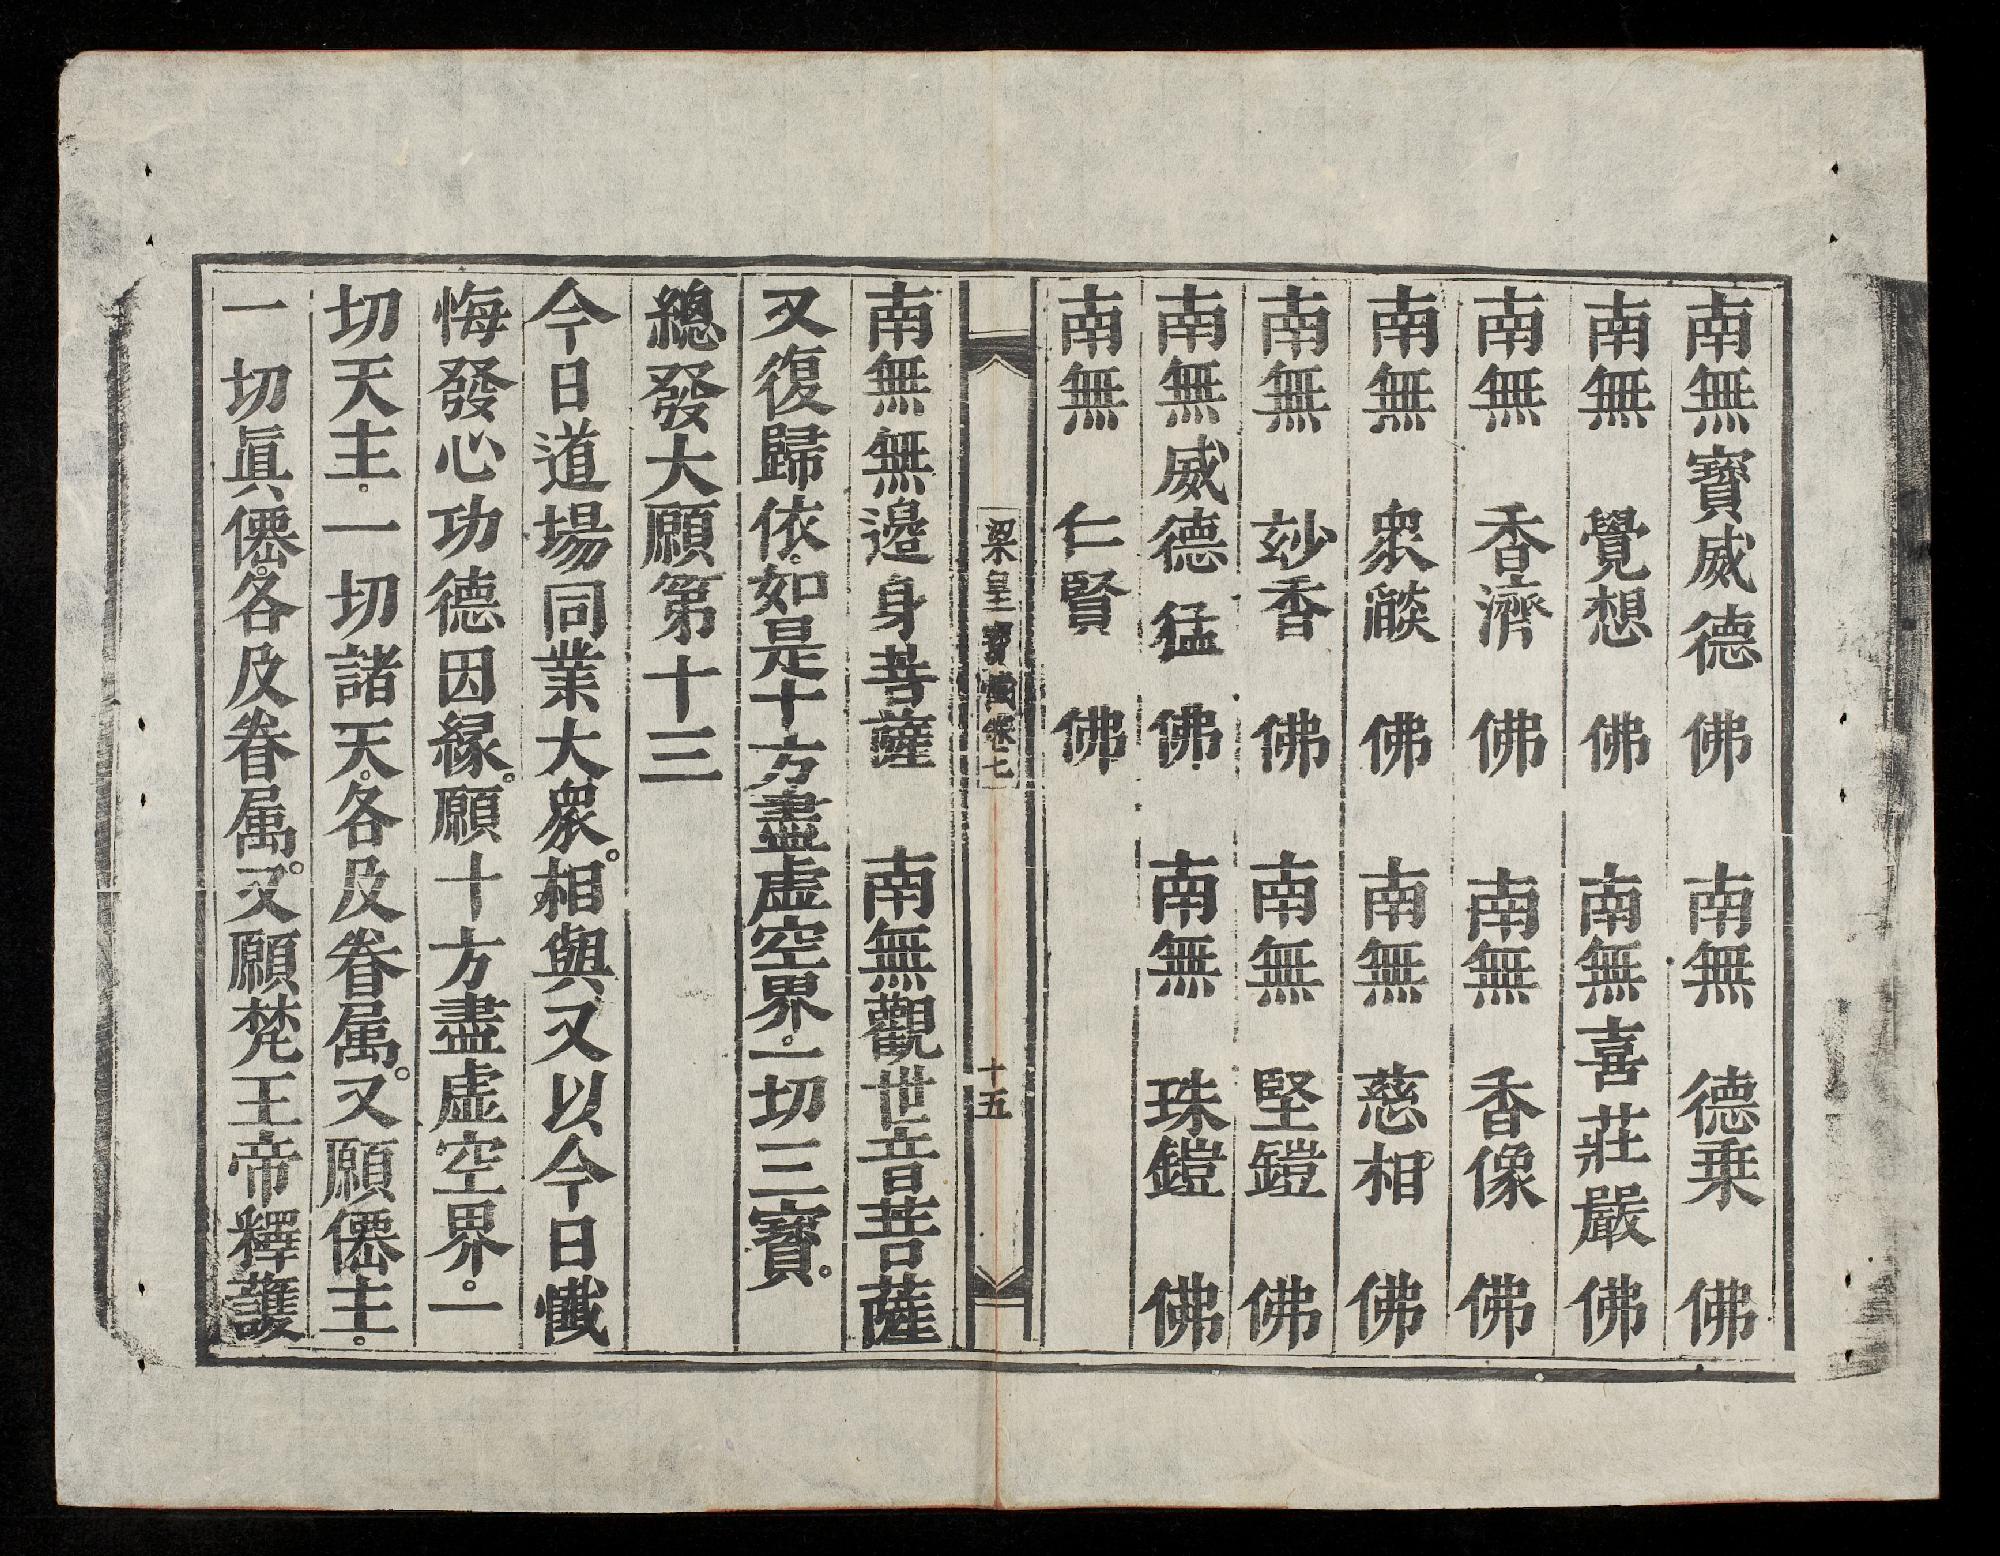 南無寶威德佛　南無德乗佛
南無覺想佛　南無喜莊嚴佛
南無香濟佛　南無香像佛
南無衆燄佛　南無慈相佛
南無玅香佛　南無堅鎧佛
南無威德猛佛　南無珠鎧佛
南無仁賢佛
梁皇寶懺卷七
十五
南無無邉身菩薩　南無觀世音菩薩
又復歸依。如是十方盡虛空界。一切三寶。
總發大願第十三
今日道場同業大衆。相與又以今日懺
悔發心功德因緣。願十方盡虛空界。一
切天主。一切諸天。各及眷属。又願僊主。
一切眞僊。各及眷属。又願梵王帝釋護